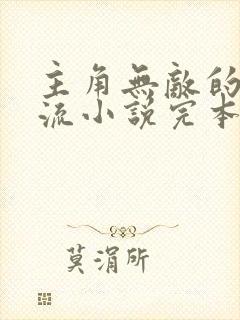 主角無敵的
流小説完本
莫涓所